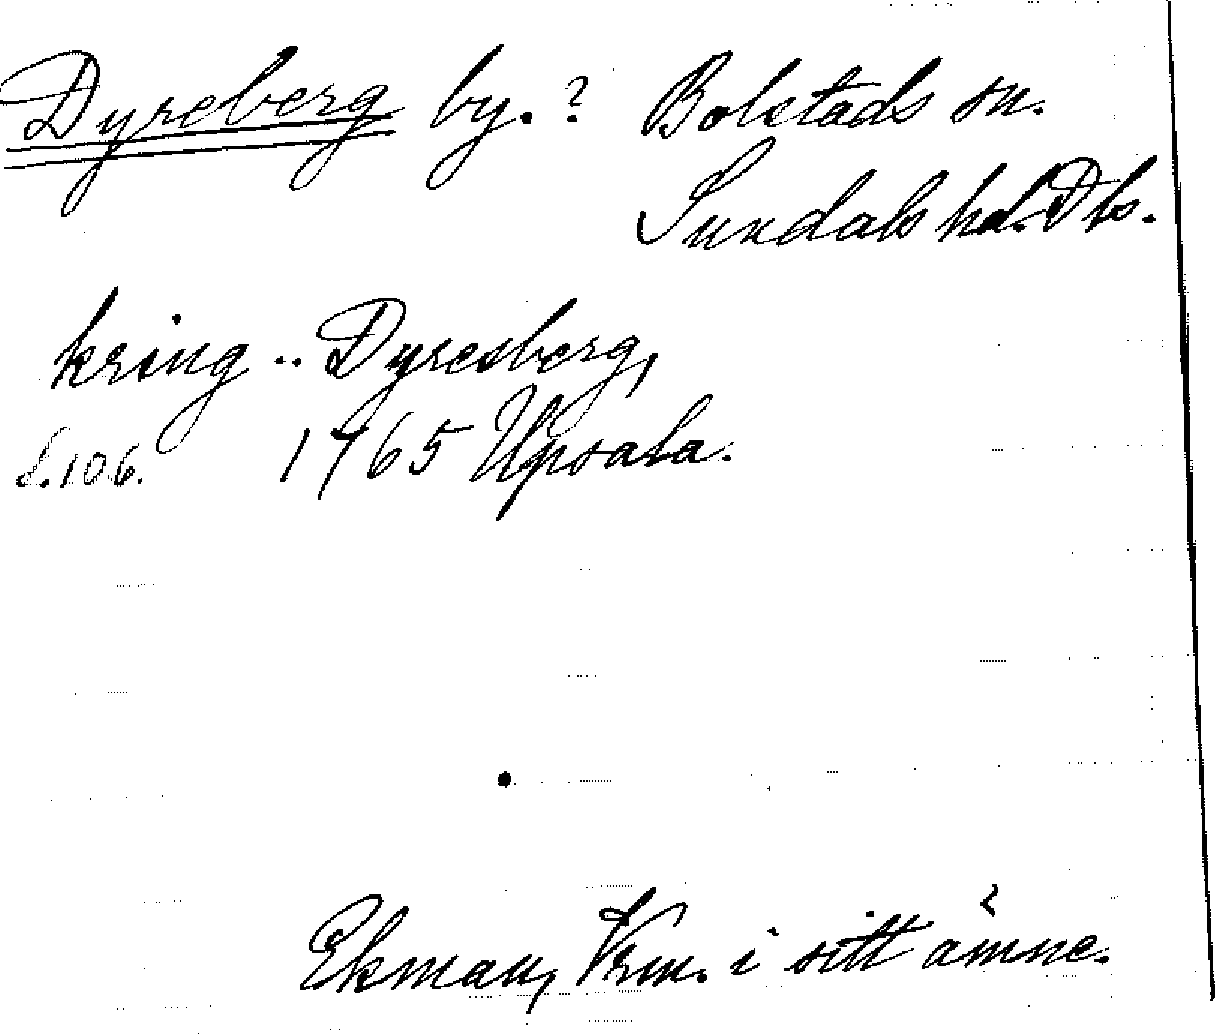 Dyreberg by. ? Bolstads sn.
Sundals hd. Dls.
kring .. Dyresberg,
S. 106. 1765 Upsala.
Ekman, Vrm. i sitt ämne.